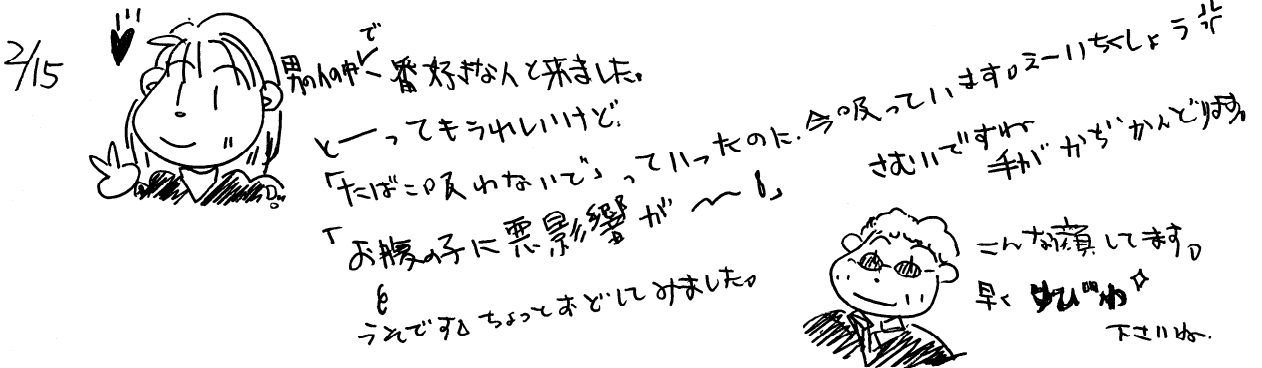 2/15
男の人の中で一番好きな人と来ました。
とーってもうれしいけど、
「たばこ吸わないで」っていったのに、今吸っています。えーいちくしょう
「お腹の子に悪影響が〜」
うそです。ちょっとおどしてみました。
さむいですね
手がかぢかんどります。
こんな顔してます。
早く
下さいね。